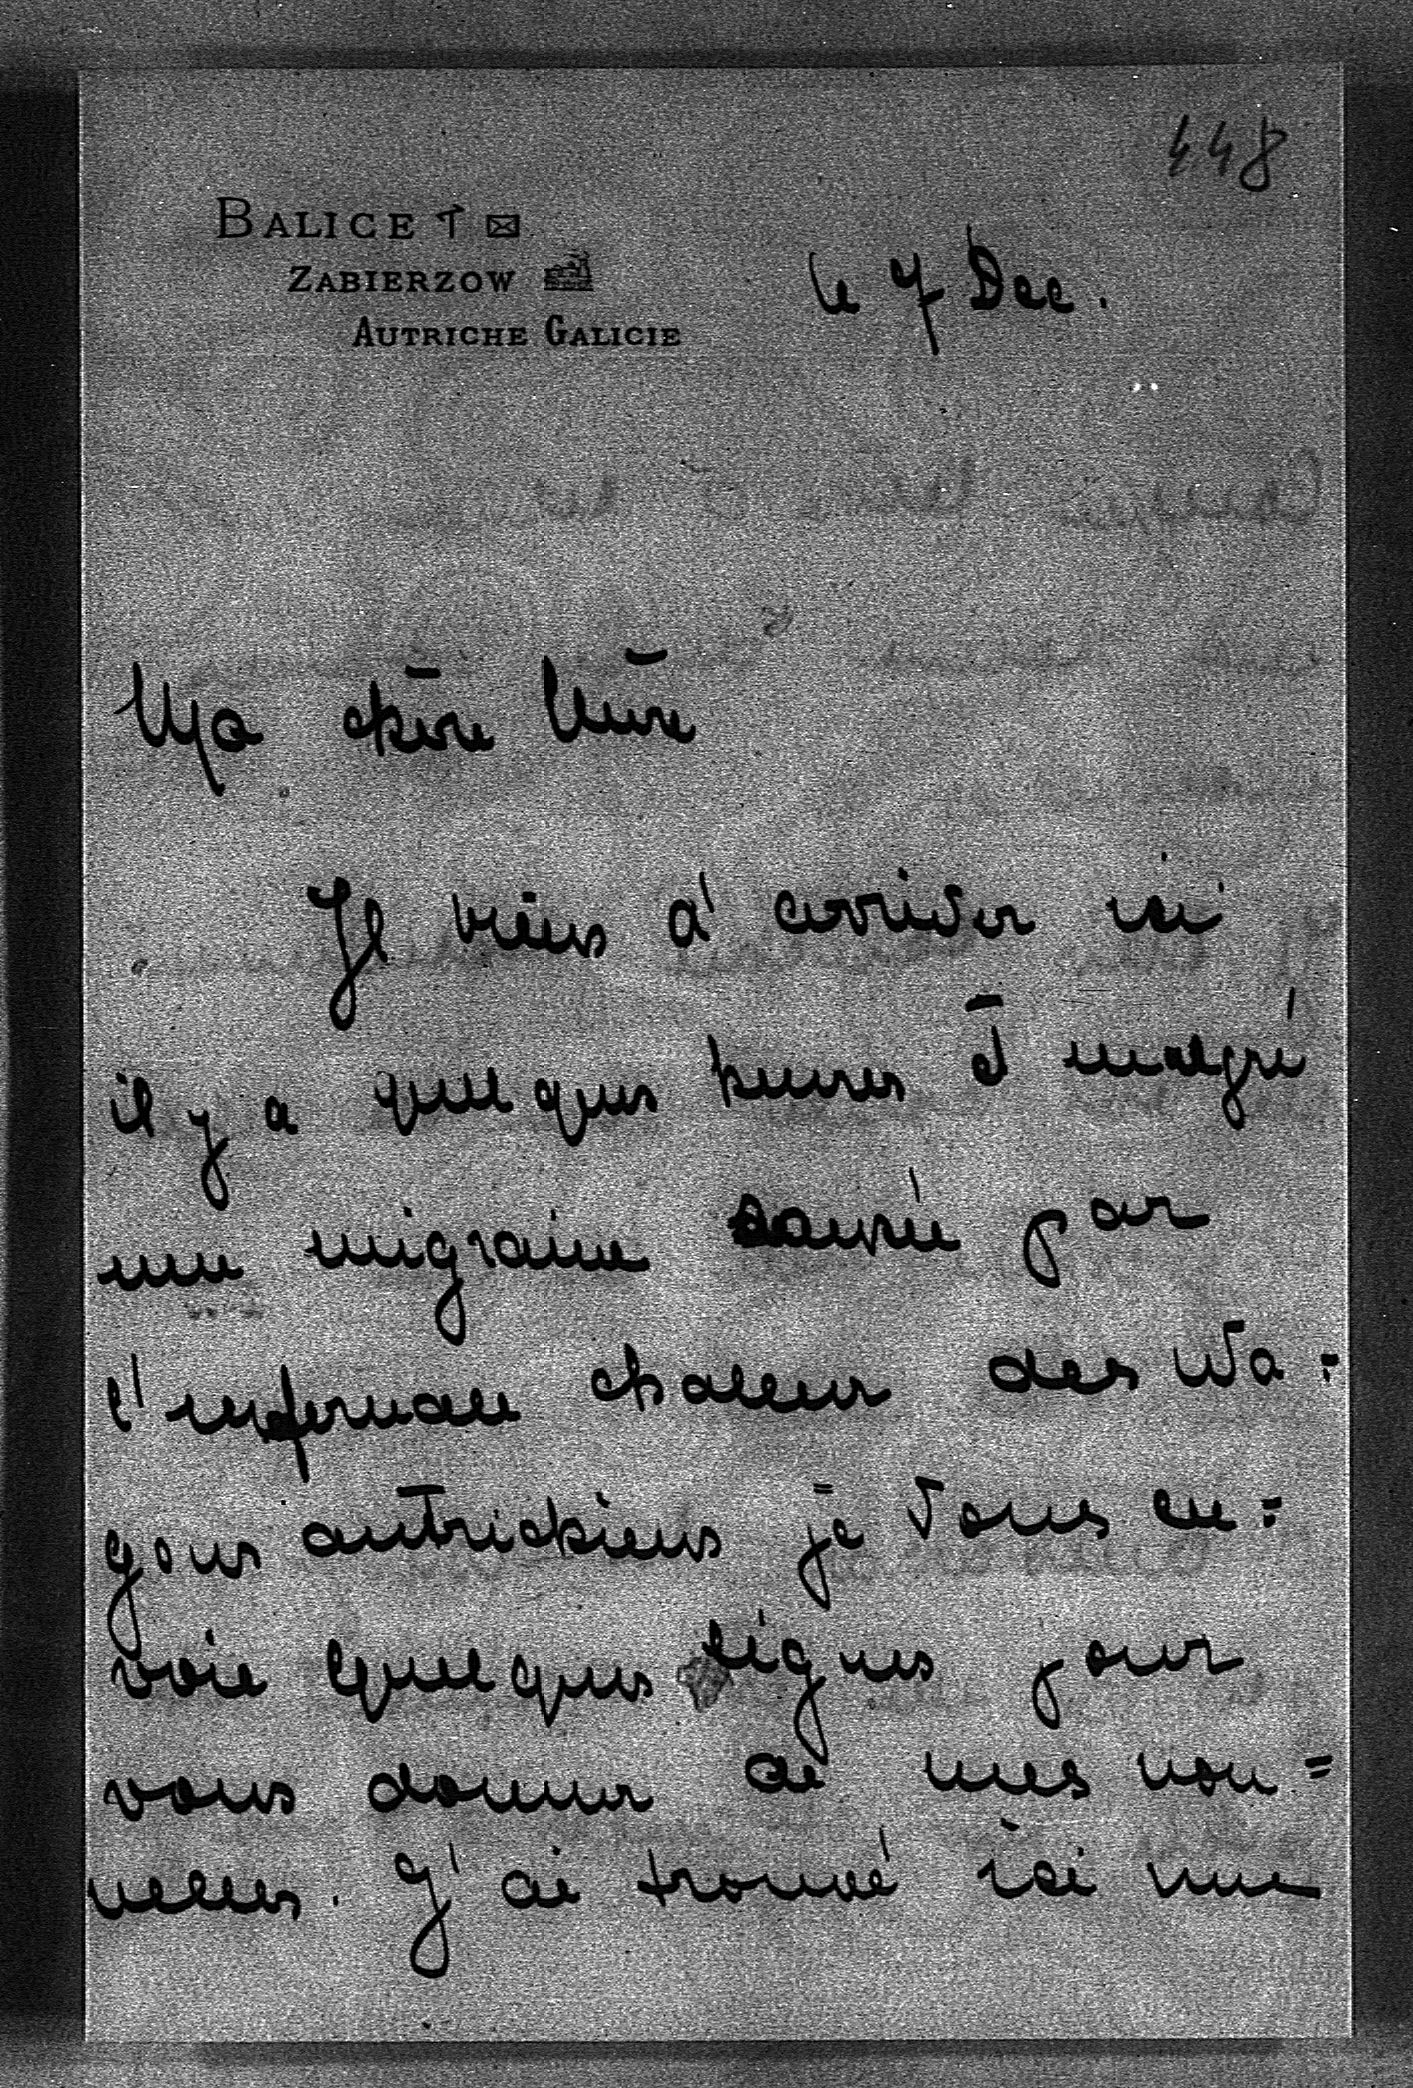 448
BALICE
ZABIERZOW
AUTRICHE GALICIE
le 7 Dec.
Ma chère Mère
Je viens d'arriver ici
il y a quelques heures et malgré
une migraine causée par
l'infernale chaleur des wa=
gons autrichiens je vous en=
voie quelques lignes pour
vous donner de mes nou=
velles. J'ai trouvé ici une